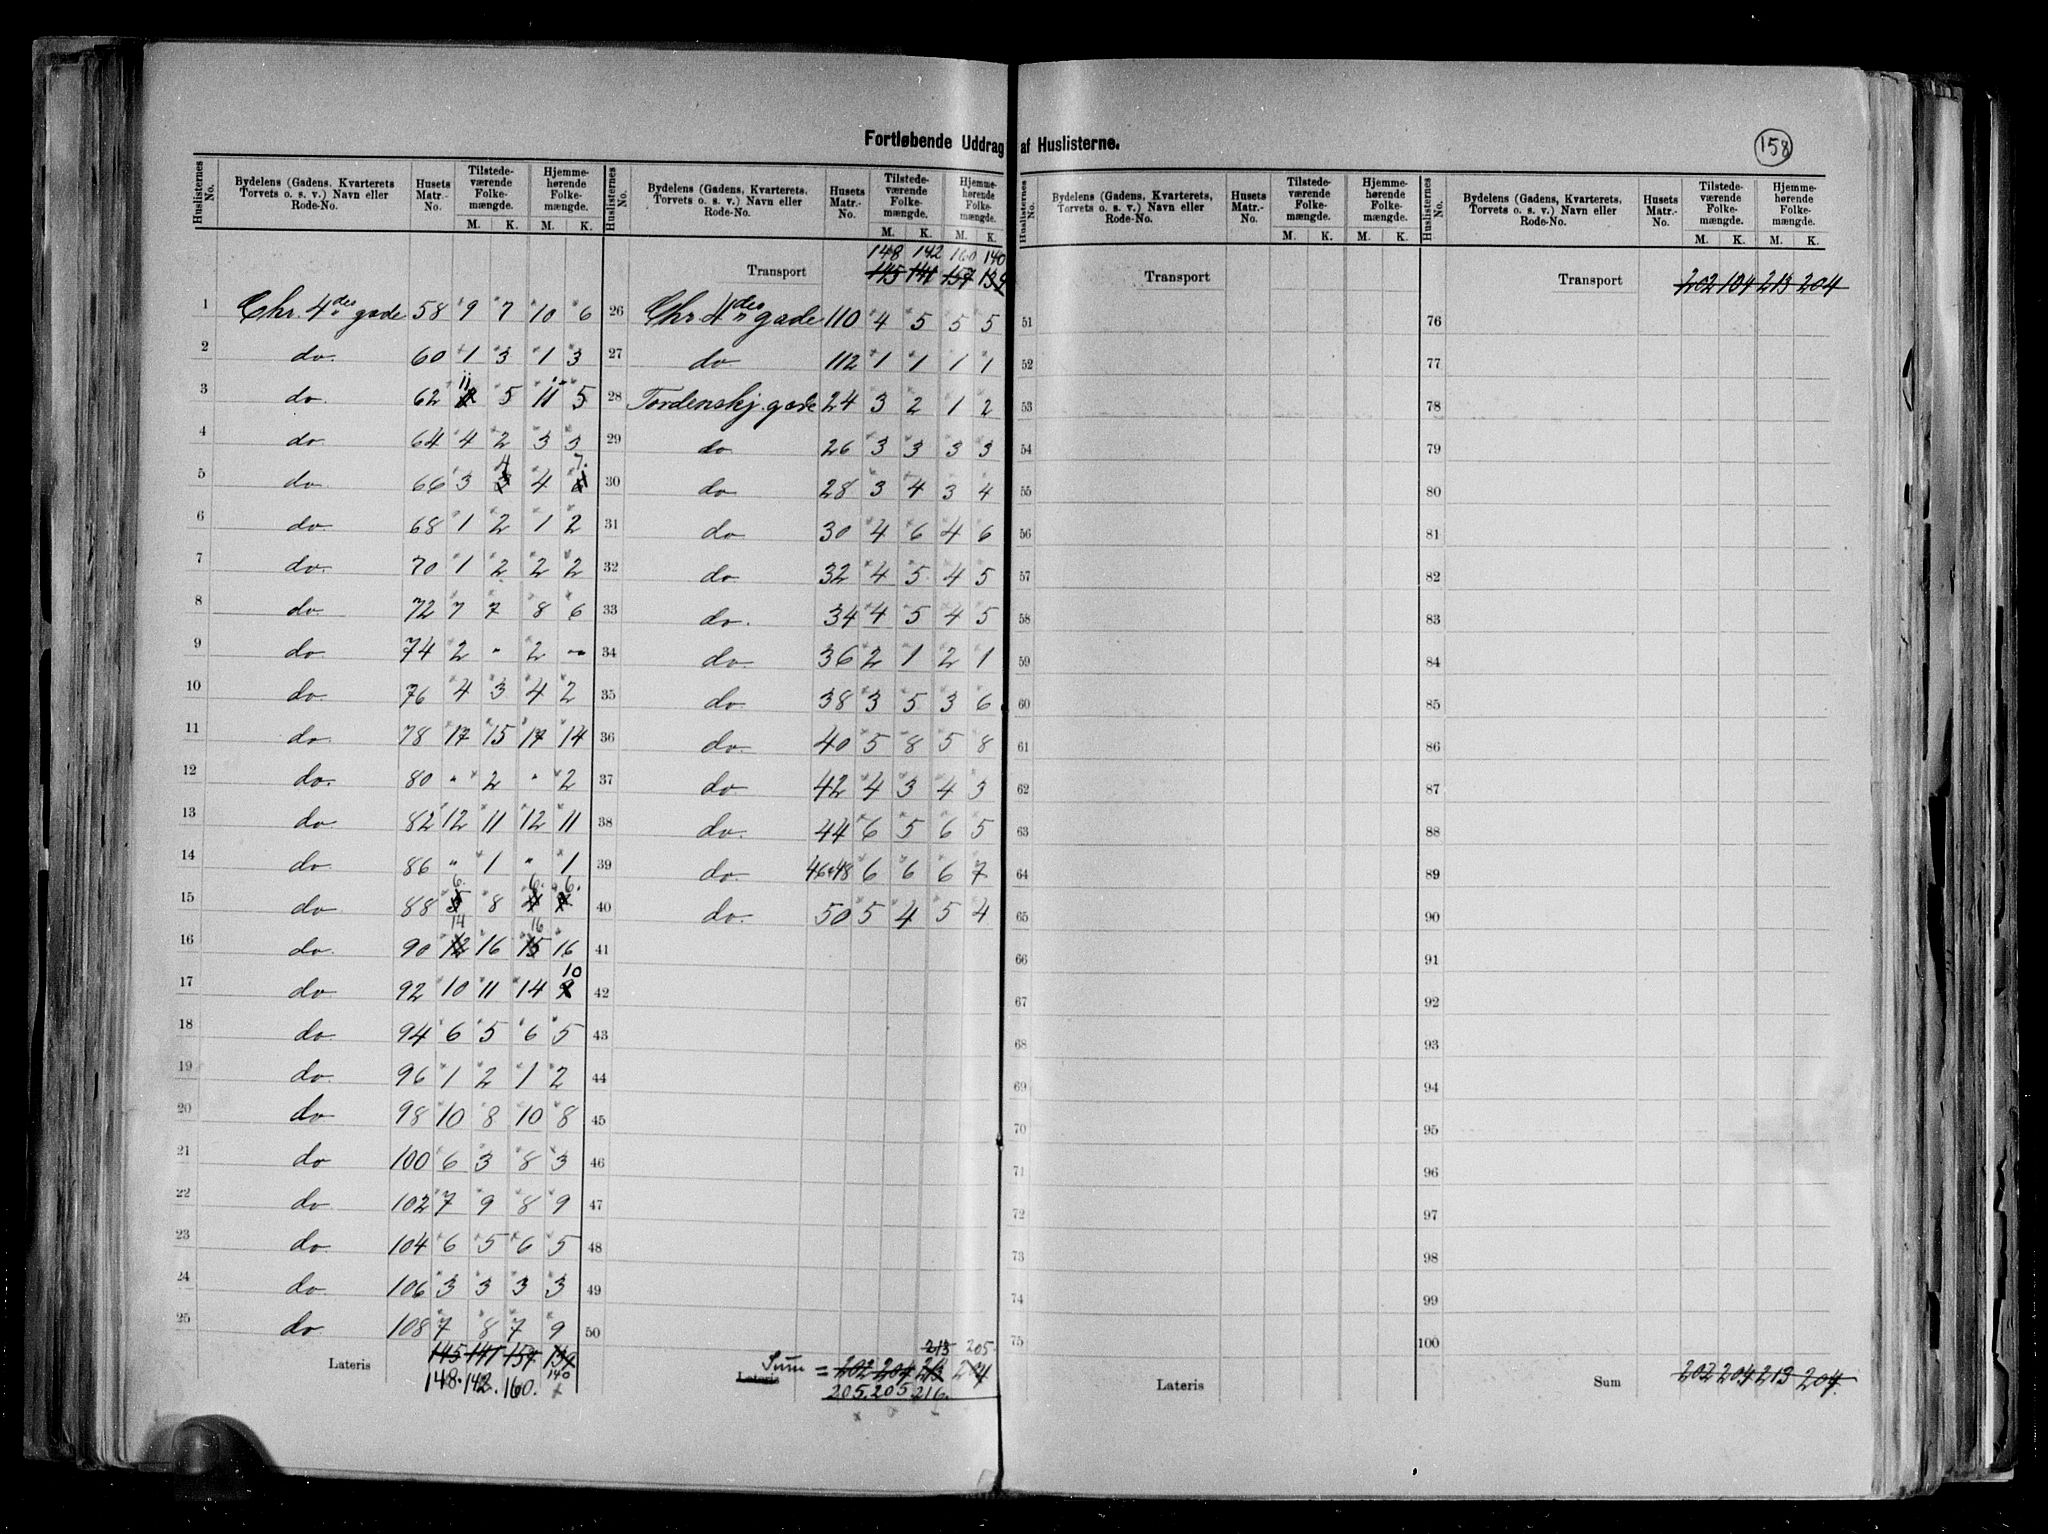 Fortløbende Uddrag af Huslisterne.
158
Huslisternes No. | Bydelens (Gadens, Kvarterets Torvets o. s. v.) Navn eller Rode-No. | Husets Matr.-No. | Tilstedeværende Folkemængde. M. K. | Hjemmehørende Folkemængde. M. K.
1 Chr. 4des gade 58 9 7 10 6
2 do. 60 1 3 1 3
3 do. 62 11 5 11 5
4 do. 64 4 2 3 3
5 do. 66 3 4 4 7.
6 do. 68 1 2 1 2
7 do. 70 1 2 2 2
8 do. 72 7 7 8 6
9 do. 74 2 " 2 "
10 do. 76 4 3 4 2
11 do. 78 17 15 17 14
12 do. 80 " 2 " 2
13 do. 82 12 11 12 11
14 do. 86 " 1 " 1
15 do. 88 6. 8 6. 6.
16 do. 90 14 16 16 16
17 do. 92 10 11 14 10
18 do. 94 6 5 6 5
19 do. 96 1 2 1 2
20 do. 98 10 8 10 8
21 do 100 6 3 8 3
22 do 102 7 9 8 9
23 do. 104 6 5 6 5
24 do 106 3 3 3 3
25 do. 108 7 8 7 9
Lateris 145 141 157 139
148. 142. 160. 140
Huslisternes No. | Bydelens (Gadens, Kvarterets, Torvets o. s. v.) Navn eller Rode-No. | Husets Matr.-No. | Tilstedeværende Folkemængde. M. K. | Hjemmehørende Folkemængde. M. K.
148 142 160 140
Transport 145 141 157 139
26 Chr 4des gade 110 4 5 5 5
27 do. 112 1 1 1 1
28 Tordenskj. gade 24 3 2 1 2
29 do 26 3 3 3 3
30 do 28 3 4 3 4
31 do 30 4 6 4 6
32 do 32 4 5 4 5
33 do. 34 4 5 4 5
34 do. 36 2 1 2 1
35 do. 38 3 5 3 6
36 do. 40 5 8 5 8
37 do 42 4 3 4 3
38 do. 44 6 5 6 5
39 do. 46+48 6 6 6 7
40 do. 50 5 4 5 4
41
42
43
44
45
46
47
48
49
50
213 205.
Sum Lateris = 202 204 204
205. 205 216.
Huslisternes No. | Bydelens (Gadens, Kvarterets, Torvets o. s. v.) Navn eller Rode-No. | Husets Matr.-No. | Tilstedeværende Folkemængde. M. K. | Hjemmehørende Folkemængde. M. K.
Transport
51
52
53
54
55
56
57
58
59
60
61
62
63
64
65
66
67
68
69
70
71
72
73
74
75
Lateris
Huslisternes No. | Bydelens (Gadens, Kvarterets Torvets o. s. v.) Navn eller Rode-No. | Husets Matr.-No. | Tilstedeværende Folkemængde. M. K. | Hjemmehørende Folkemængde. M. K.
Transport 202 194 213 204
76
77
78
79
80
81
82
83
84
85
86
87
88
89
90
91
92
93
94
95
96
97
98
99
100
Sum 202 204 213 204.